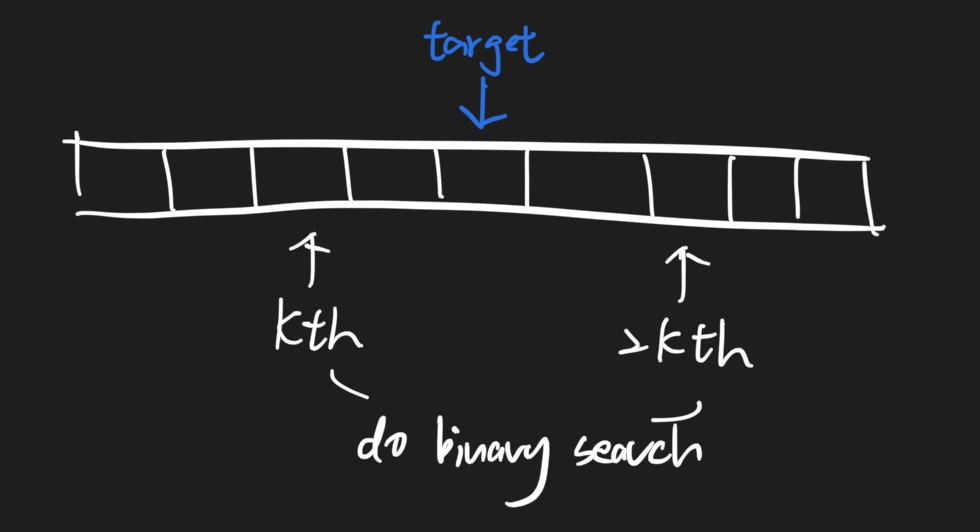 target
kth
2kth
do binary search